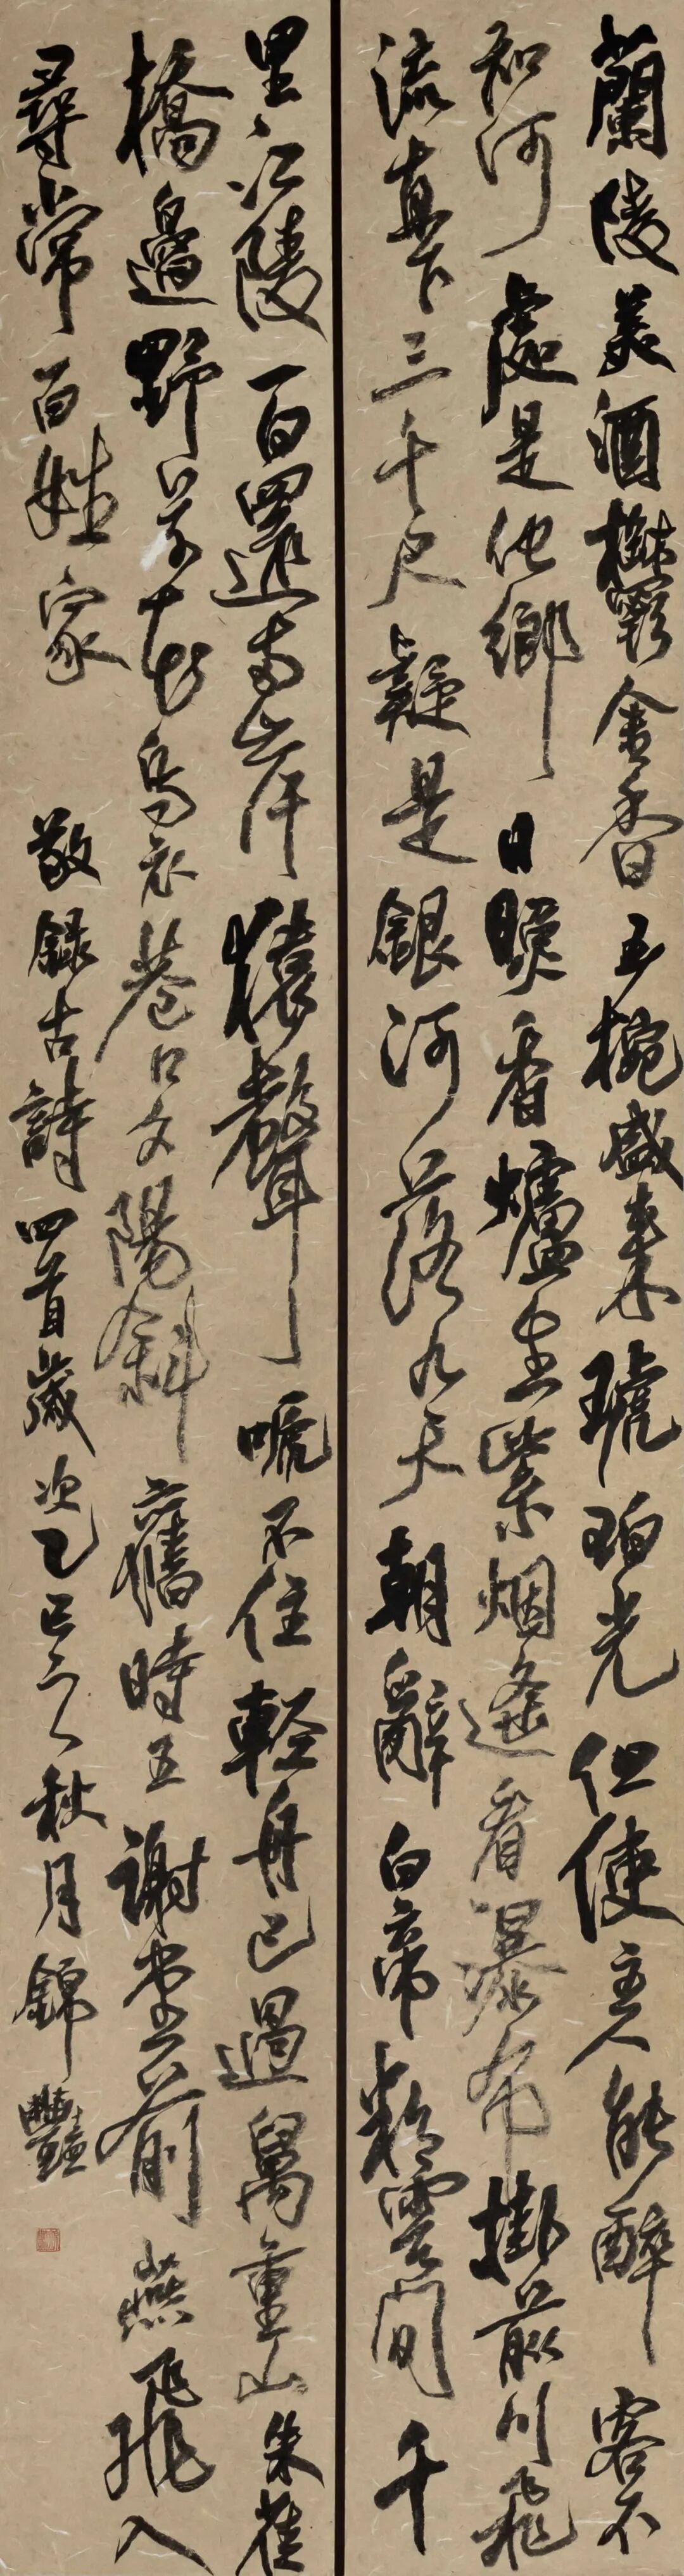 蘭陵美酒欝金香玉椀盛来琥珀光但使主人能醉客不
知何處是他鄉日照香爐生紫烟遙看瀑布掛前川飛
流直下三千尺疑是銀河落九天朝辭白帝彩雲間千
里江陵一百還兩岸猿聲啼不住輕舟已過萬重山朱雀
橋邊野草花烏衣巷口夕陽斜舊時王謝堂前燕飛入
尋常百姓家 敬錄古詩四首歲次乙巳之秋月錦豔